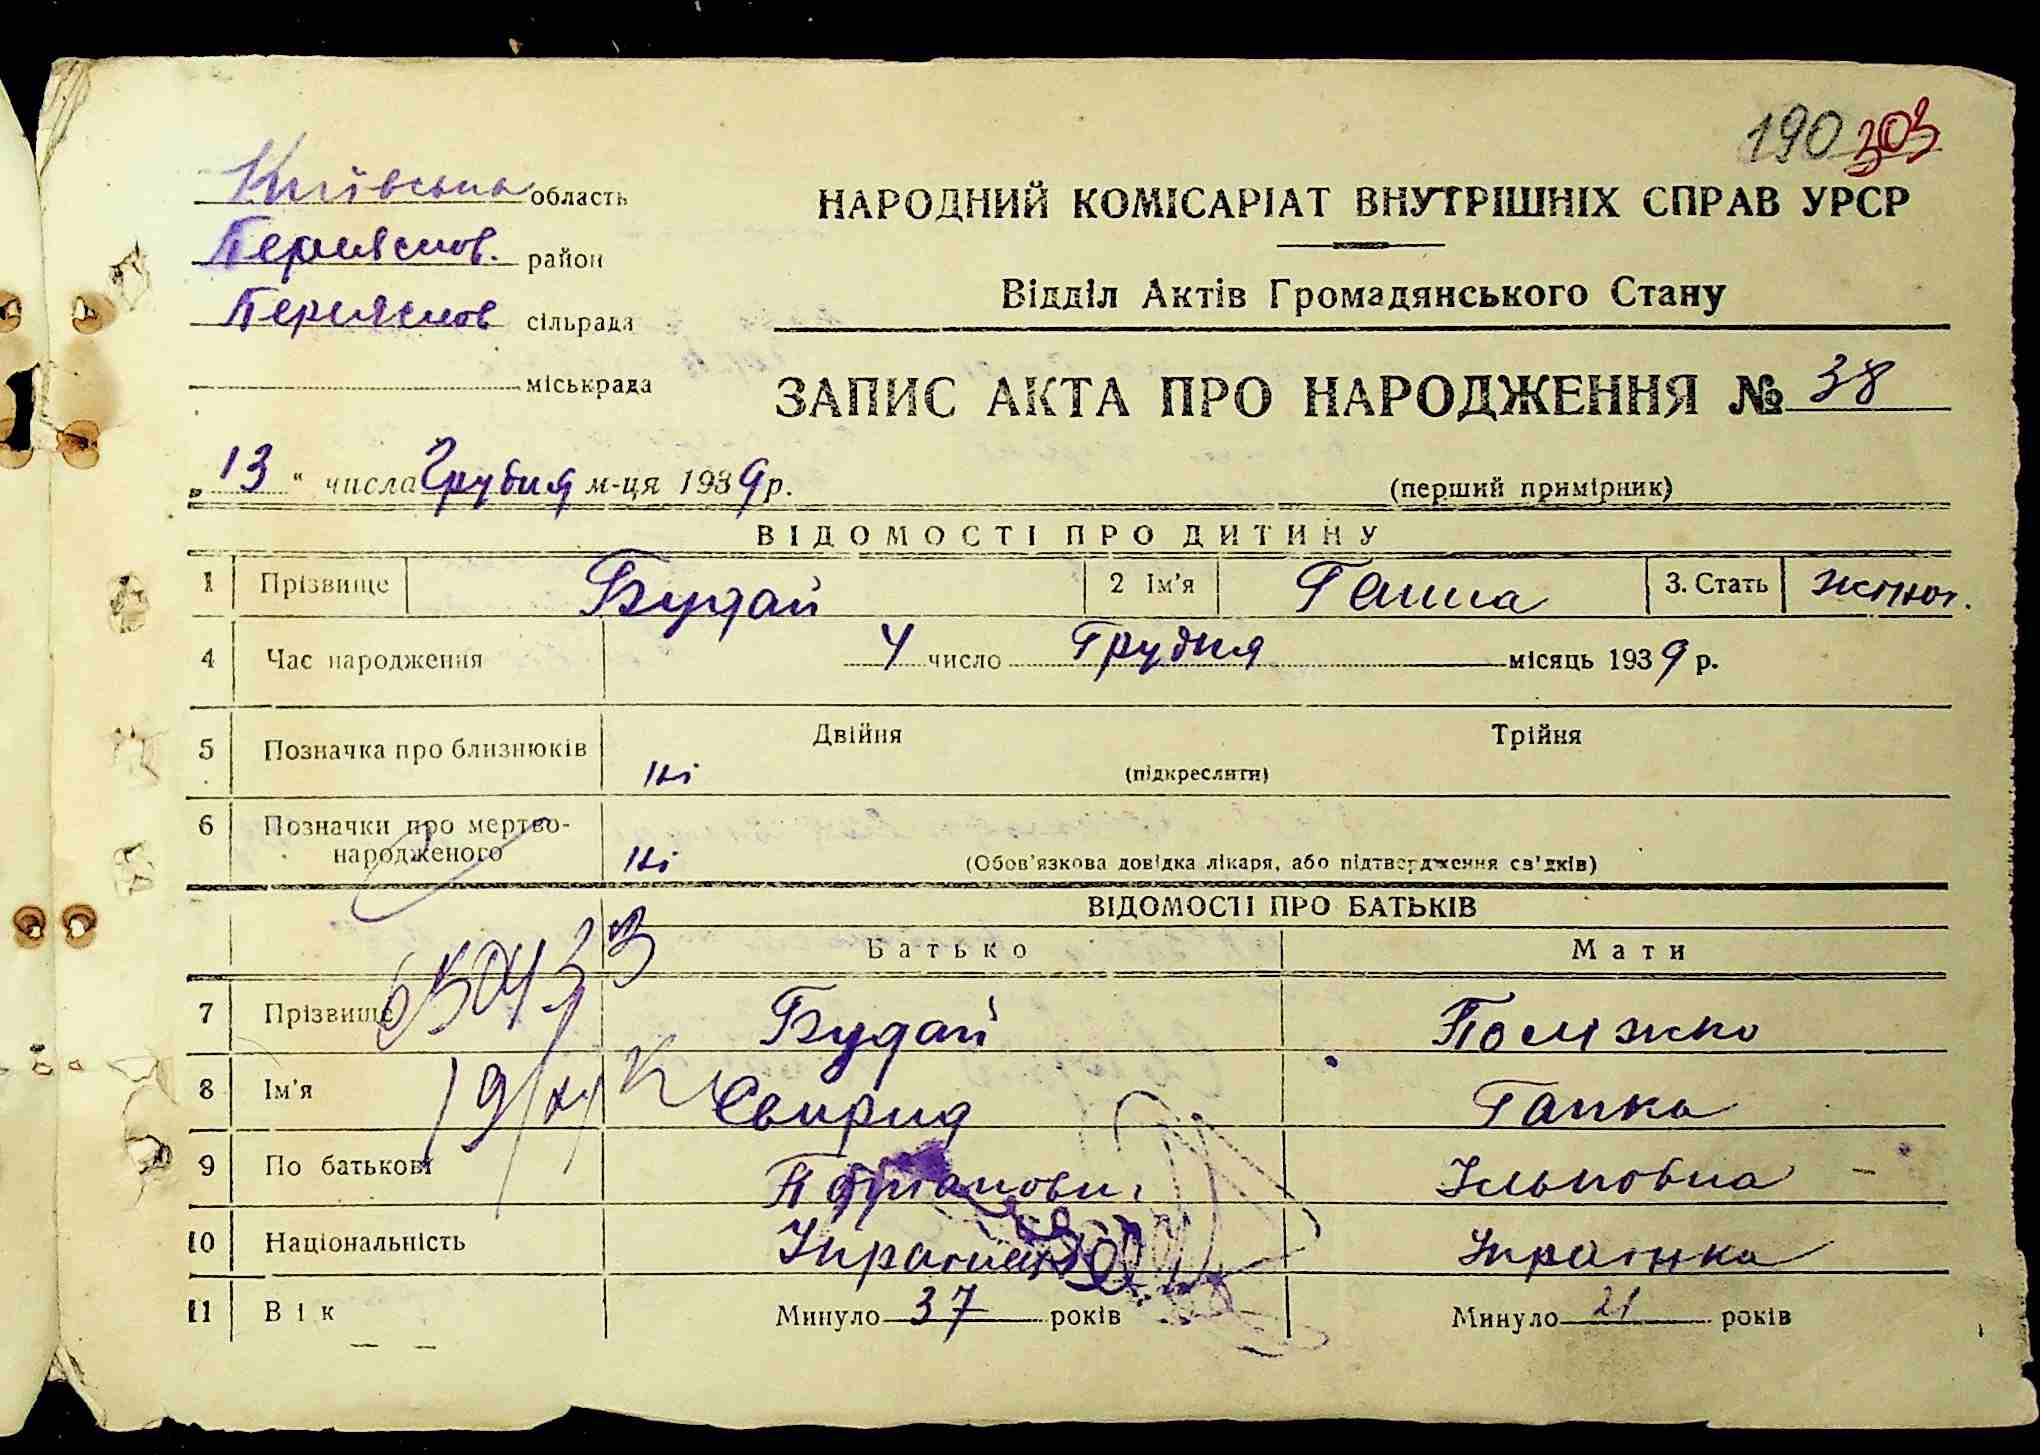 190 303
Київська область
НАРОДНИЙ КОМІСАРІАТ ВНУТРІШНІХ СПРАВ УРСР
Переяслов. район
Відділ Актів Громадянського Стану
Переяслов сільрада
міськрада
ЗАПИС АКТА ПРО НАРОДЖЕННЯ № 38
„13“ числа Грудня м-ця 1939 р.
(перший примірник)
ВІДОМОСТІ ПРО ДИТИНУ
1 Прізвище Будай 2 Ім'я Ганна 3. Стать жіноч.
4 Час народження 4 число Грудня місяць 1939 р.
5 Позначка про близнюків ні Двійня Трійня
(підкреслити)
6 Позначки про мертво-
народженого ні (Обов'язкова довідка лікаря, або підтвердження св'дків)
ВІДОМОСТІ ПРО БАТЬКІВ
Батько Мати
7 Прізвище Будай Поміжко
8 Ім'я Свирид Гапка
9 По батькові Ільковна
10 Національність Українец Українка
11 Вік Минуло 37 років Минуло 21 років